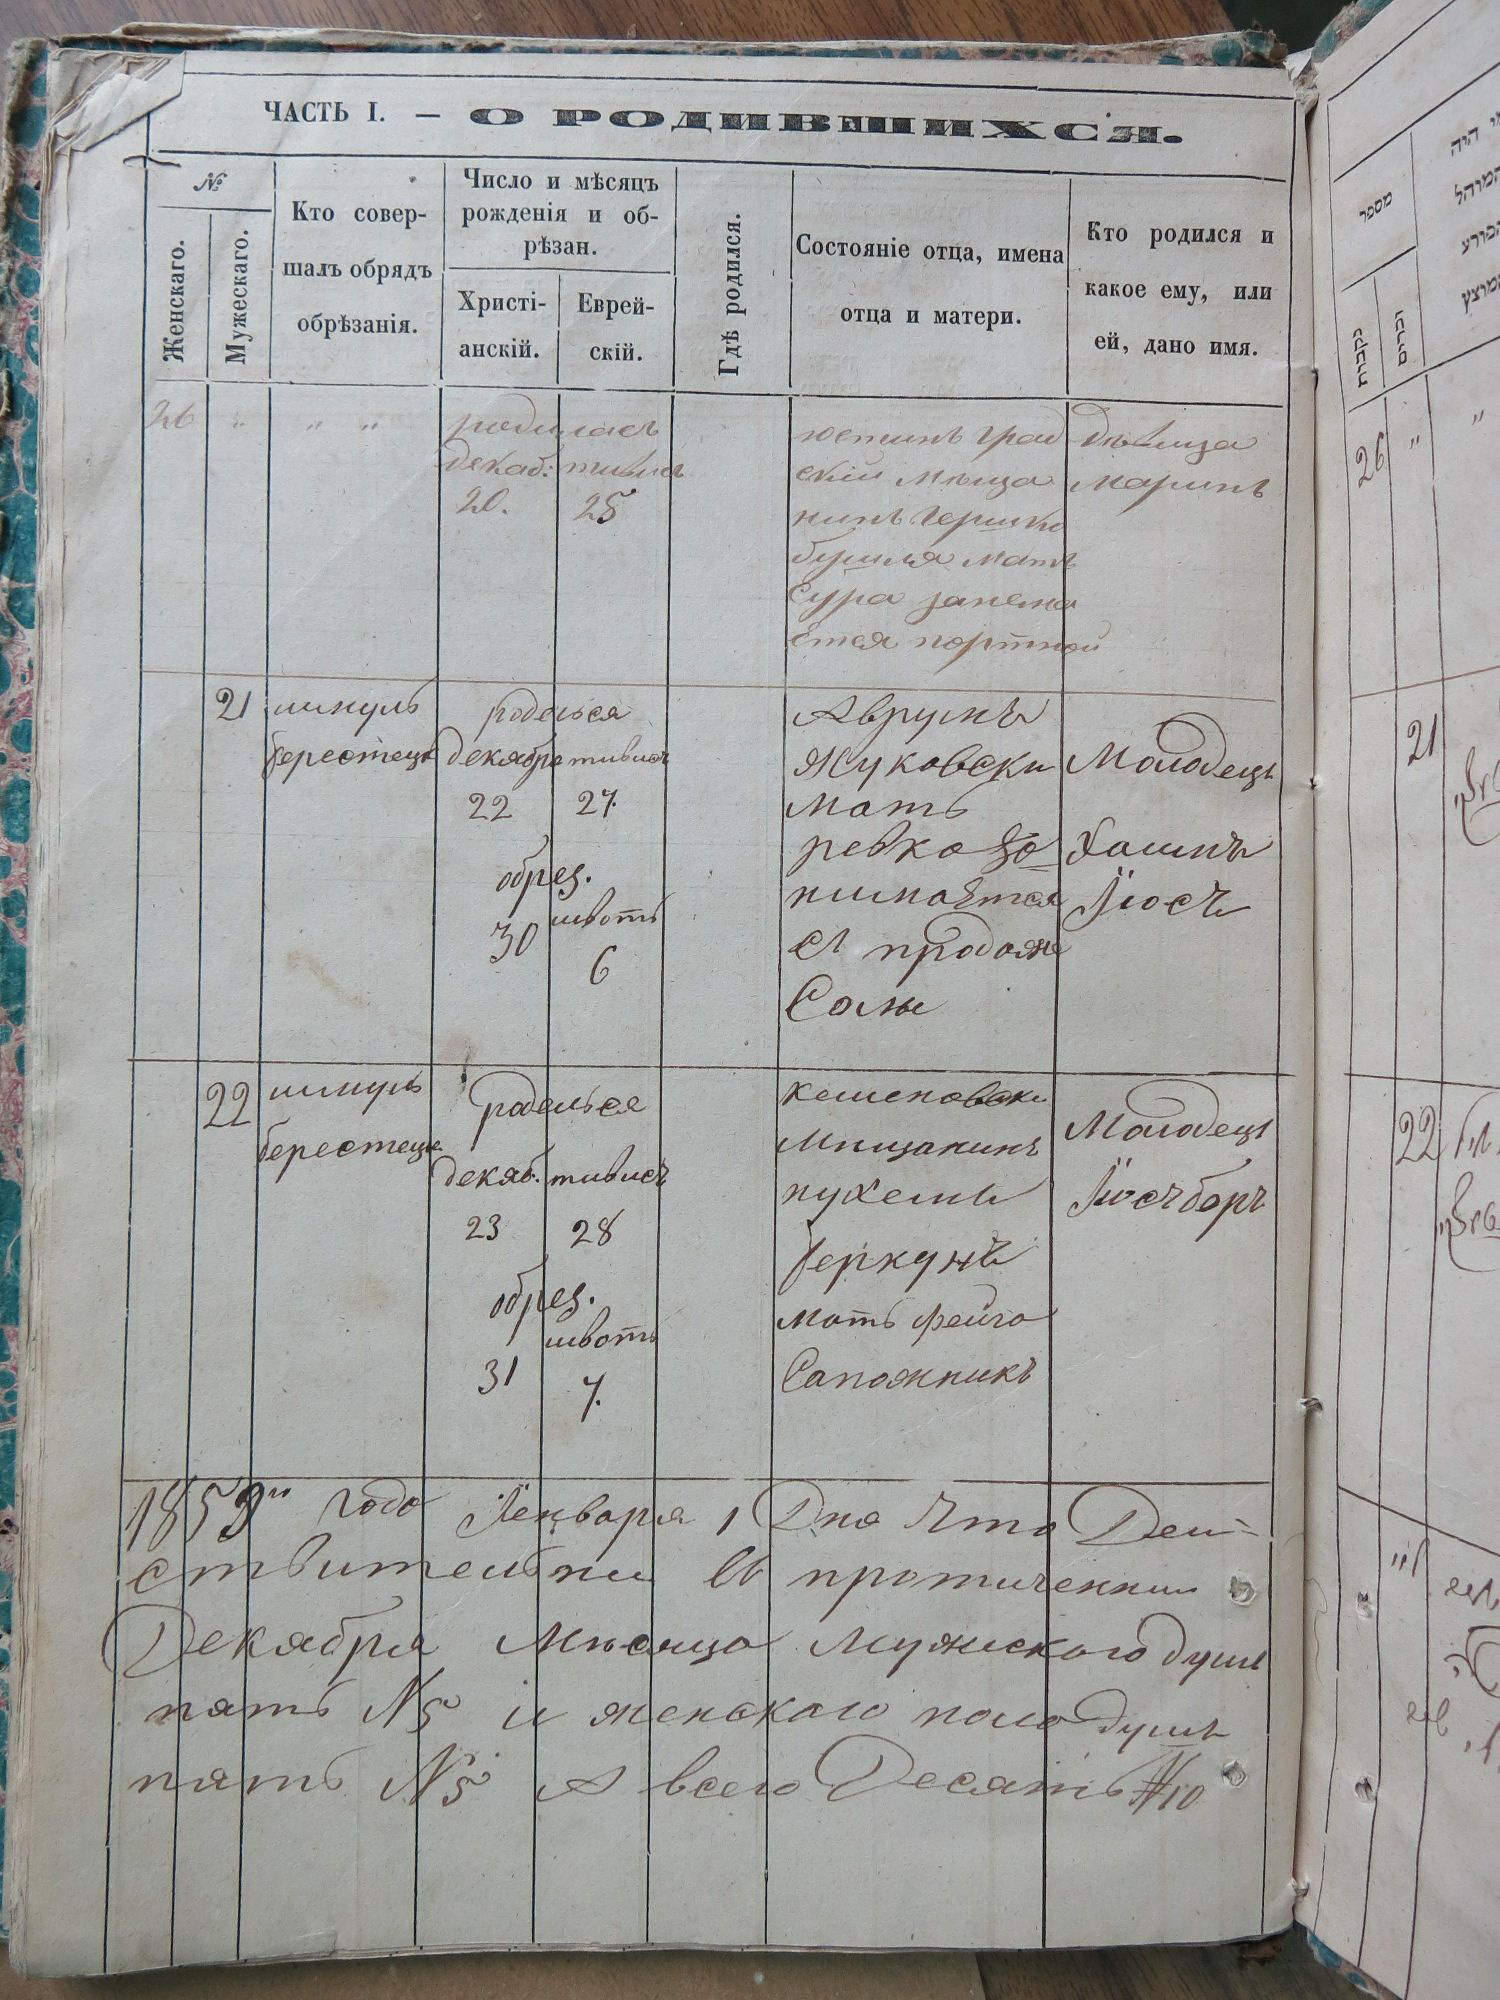 ЧАСТЬ I. — О РОДИВШИХСЯ.
№
Женскаго.
Мужескаго.
Кто совер-
шалъ обрядъ
обрѣзанія.
Число и мѣсяцъ
рожденія и об-
рѣзан.
Христі-
анскій.
Еврей-
скій.
Гдѣ родился.
Состояніе отца, имена
отца и матери.
Кто родился и
какое ему, или
ей, дано имя.
26 " " "
родилась
декаб: тивисъ
20. 25
град
скій мѣща
нинъ Гершко
мать
Сура занема
ется портной
дѣвица
Маримъ
21
шмуль
берестецк
роделься
декабр тивисъ
22 27.
обрез.
швотъ
30 6
Аврумъ
Жуковски
мать
ревка за
нимается
съ продаже
Соли
Молодець
Хаимъ
Іосъ
22
шмуль
берестецк
роделься
декаб. тивисъ
23 28
обрез.
швотъ
31 7.
мищанинъ
нухемъ
беркунъ
мать фейга
Сапожникъ
Молодець
Іосъ беръ
1853 года Генваря 1 Дня Что Деи-
ствительни въ протичении
Декабря мѣсяца мужискаго душъ
пять №5 и женскаго пола душъ
пять №5 А всего Десять №10
מספר
נקבות
זכרים
26 " "
21
22